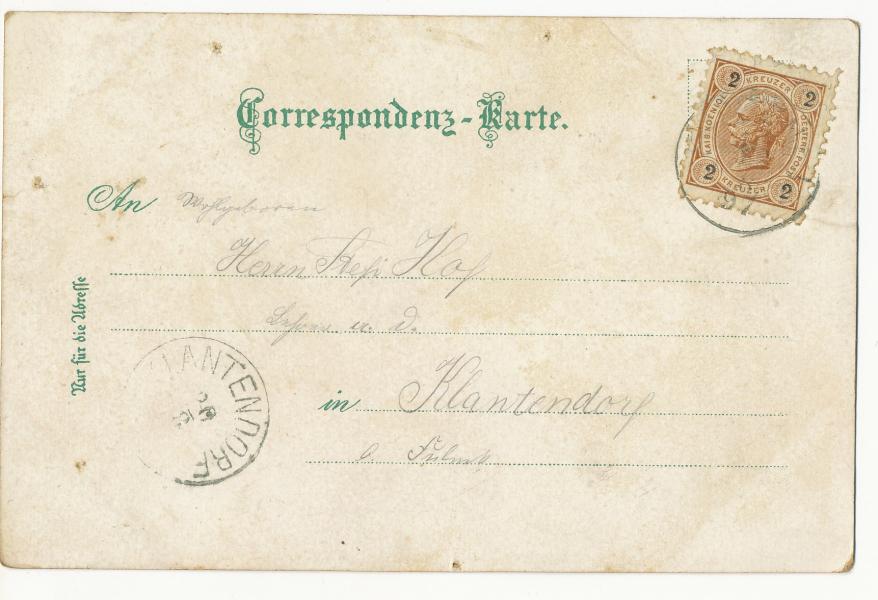 Correspondenz-Karte.
2 KREUZER 2
KAIS. KOENIGL. OESTERR. POST
2 KREUZER 2
97
An Wohlgeboren
Herrn Hof
Lehrer a. D.
Nur für die Adresse
KLANTENDORF
in Klantendorf
b. Fulnek